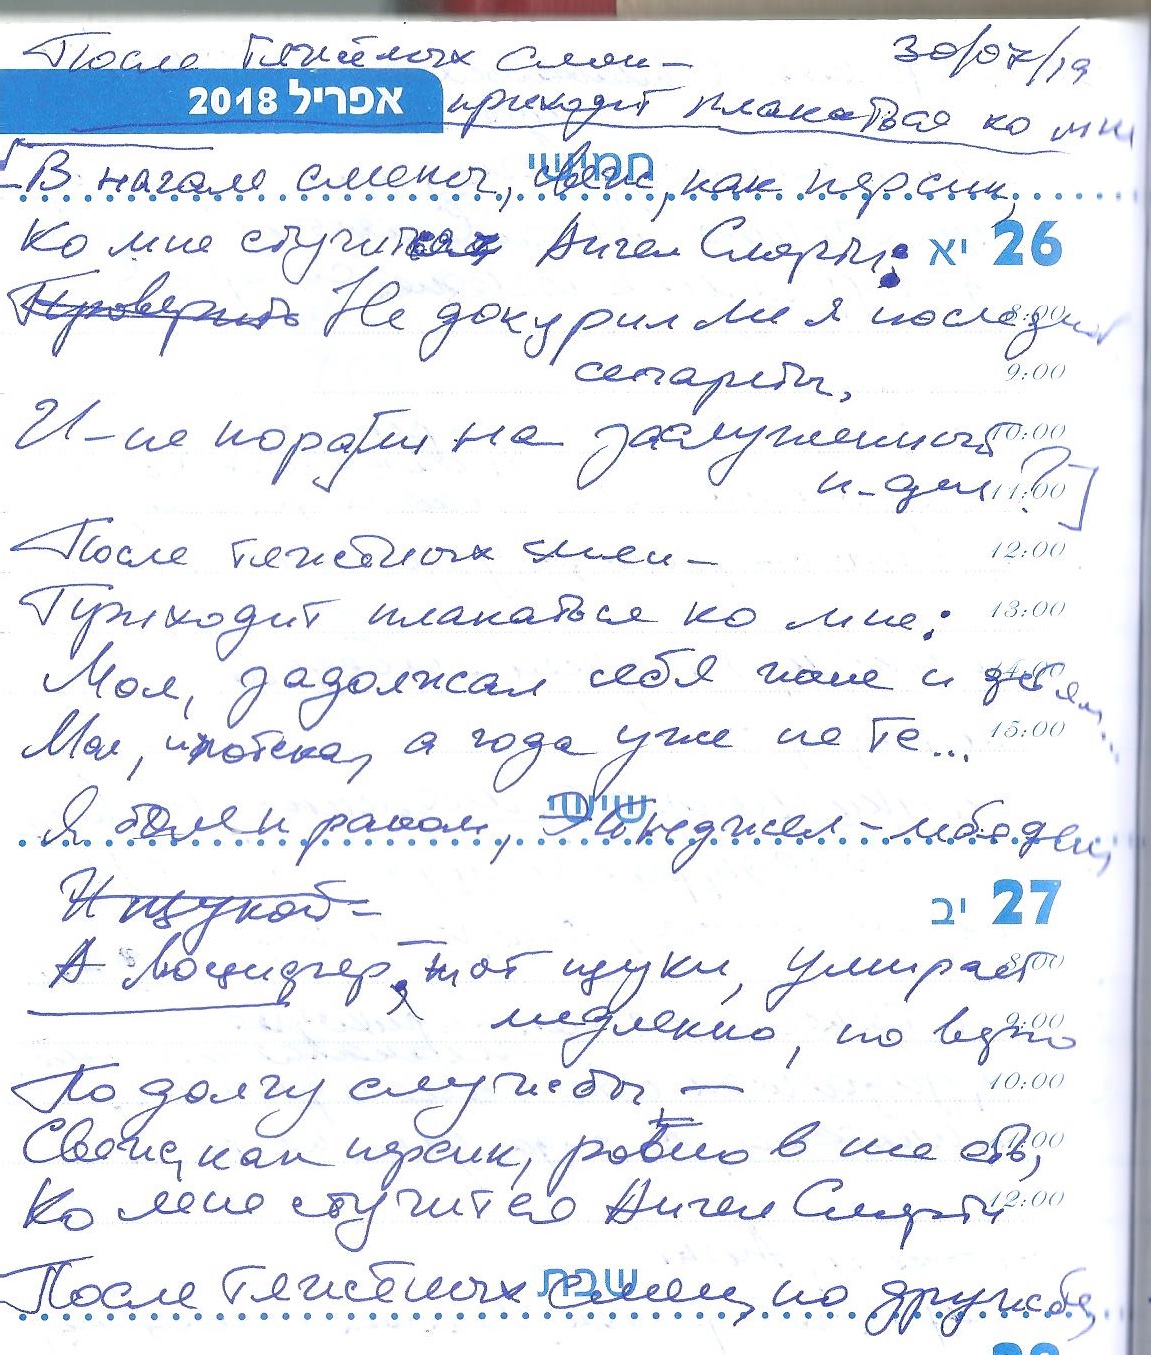 После тяжёлых смен –
30/07/19
אפריל 2018
приходит плакаться ко мне
חמישי
[В начале смены, свеж, как персик,
Ко мне стучится Ангел Смерти:
יא 26
Проверить Не докурил ли я последней
8:00
сигареты,
9:00
И – не пора ли на заслуженный
10:00
н-дец?]
11:00
После тяжёлых смен –
12:00
Приходит плакаться ко мне:
13:00
Мол, задолжал себя жене и детям...
14:00
Мол, ипотека, а года уже не те...
15:00
שישי
Я болен раком, Эйнджел – лебедем,
И щукой –
יב 27
А Люцифер, тот щуки, умирает
8:00
медленно, но верно
9:00
По долгу службы, –
10:00
Свеж, как персик, ровно в шесть,
11:00
Ко мне стучится Ангел Смерти
12:00
שבת
После тяжёлых смен, по дружбе,